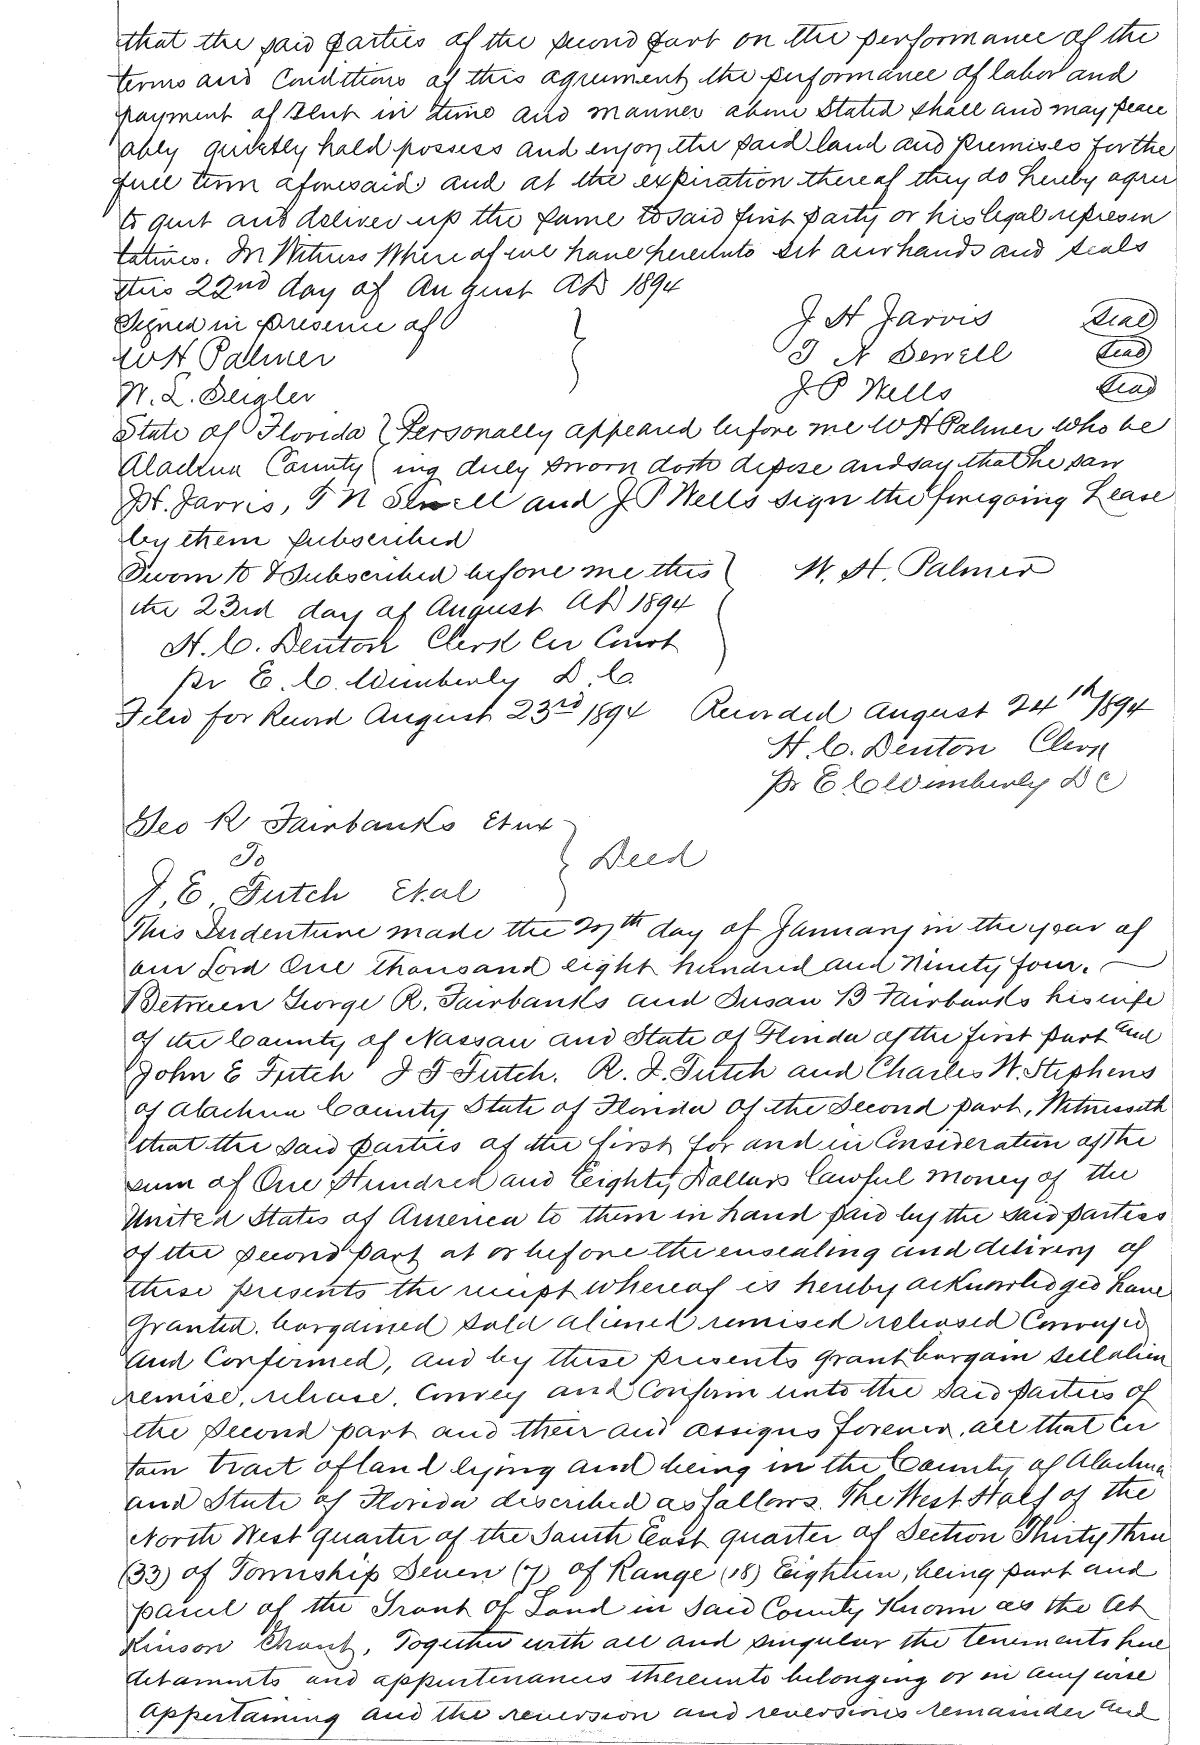 that the said parties of the second part on the performance of the
terms and Conditions of this agreement the performance of labor and
payment of Rent in time and manner above Stated shall and may peace
ably quietly hold possess and enjoy the said land and premises for the
full term aforesaid and at the expiration thereof they do hereby agree
to quit and deliver up the same to said first party or his legal represen
tatives. In Witness Where of we have hereunto set our hands and seals
this 22nd day of August AD 1894
Signed in presence of } J H Jarvis Seal
W H Palmer T N Sewell Seal
W. L. Seigler J P Wells Seal
State of Florida { Personally appeared before me W H Palmer who be
Alachua County ( ing duly sworn doth depose and say that he saw
J H. Jarvis, T N Sewell and J P Wells sign the foregoing Lease
by them subscribed
Sworn to & Subscribed before me this } W. H. Palmer
the 23rd day of August AD 1894
H. C. Denton Clerk Cir Court
pr E. C. Wimberly D. C.
Filed for Record August 23rd 1894 Recorded August 24th 1894
H. C. Denton Clerk
pr E C Wimberly D C
Geo R Fairbanks Et ux
To } Deed
J. E. Futch Et. al
This Indenture made the 27th day of January in the year of
our Lord One thousand eight hundred and Ninety four.
Between George R. Fairbanks and Susan B Fairbanks his wife
of the County of Nassau and State of Florida of the first part and
John E Futch J T Futch. R. I. Futch and Charles W. Stephens
of Alachua County State of Florida of the Second part, Witnesseth
that the said parties of the first for and in Consideration of the
sum of One Hundred and Eighty Dollars lawful money of the
United States of America to them in hand paid by the said parties
of the second part at or before the ensealing and delivery of
these presents the receipt whereof is hereby acknowledged have
Granted. bargained sold aliened remised released Conveyed
And Confirmed, and by these presents grant bargain sell alien
remise, release, Convey and Confirm unto the said parties of
the Second part and their and assigns forever, all that Cer
tain tract of land lying and being in the County of Alachua
and State of Florida discribed as follows. The West Half of the
North West quarter of the South East quarter of Section Thirty three
(33) of Township Seven (7) of Range (18) Eighteen, being part and
parcel of the Grant of Land in said County Known as the At
kinson Grant, Together with all and singular the tenements here
ditaments and appurtenances thereunto belonging or in any wise
Appertaining and the reversion and reversions remainder and